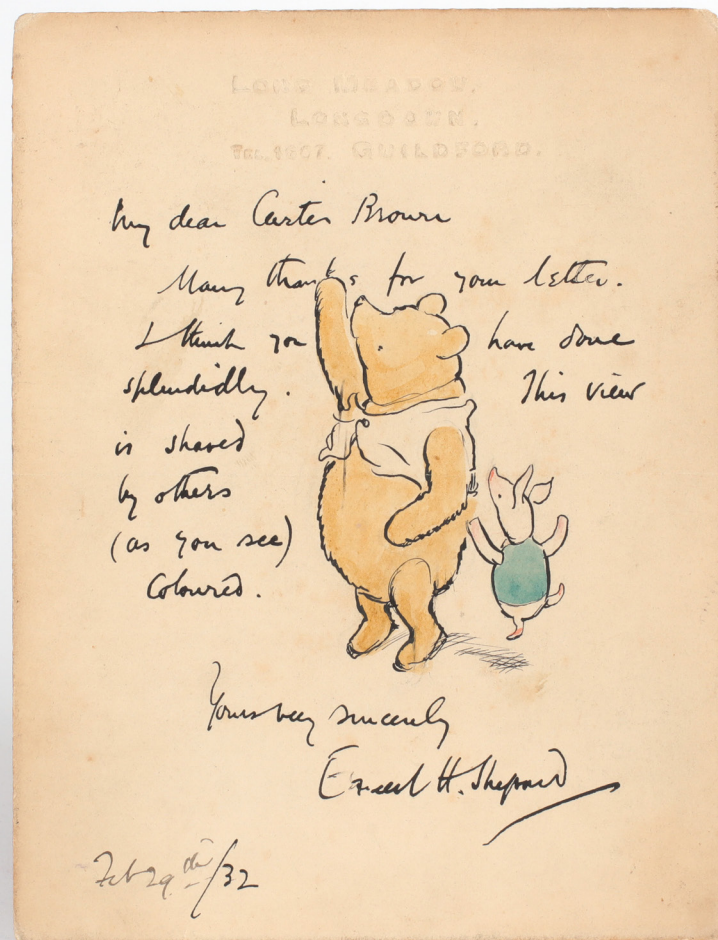 LONG MEADOW.
LONGDOWN.
TEL. 1807. GUILDFORD.
My dear Carter Brown
Many thanks for your letter.
I think you have done
splendidly. This view
is shared
by others
(as you see)
Coloured.
Yours very sincerely
Ernest H. Shepard
Feb 29th/32